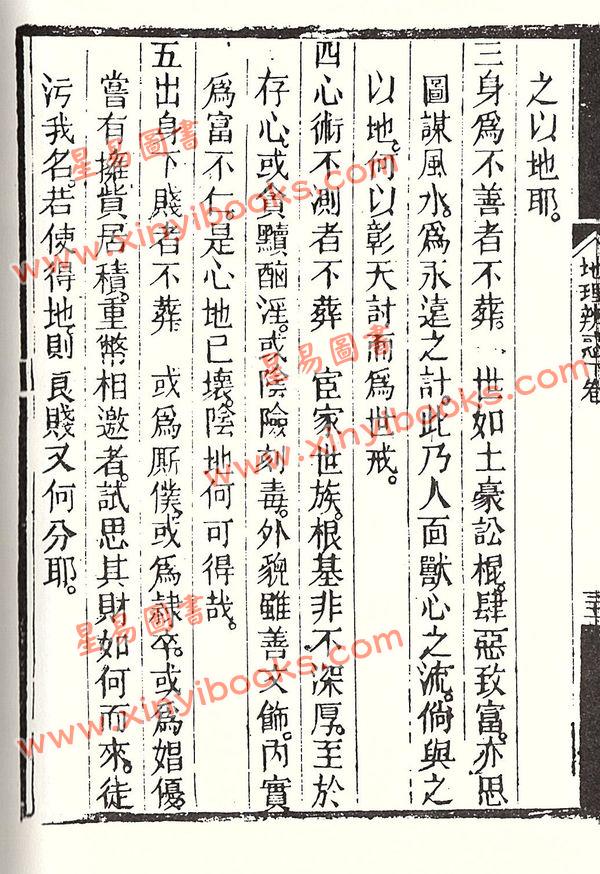 之以地耶。
三身為不善者不葬　世如土豪訟棍。肆惡致富。亦思
圖謀風水。為永遠之計。此乃人面獸心之流。倘與之
以地。何以彰天討而為世戒。
四心術不測者不葬　宦家世族。根基非不深厚。至於
存心。或貪黷酗淫。或陰險刻毒。外貌雖善文飾。內實
為富不仁。是心地已壞。陰地何可得哉。
五出身下賤者不葬　或為厮僕。或為隸卒。或為娼優。
嘗有擁貲居積。重幣相邀者。試思其財如何而來。徒
污我名。若使得地。則良賤又何分耶。
地理辨惑　下卷
星易圖書
www.xinyibooks.com
星易圖書
www.xinyibooks.com
星易圖書
www.xinyibooks.com
星易圖書
www.xinyibooks.com